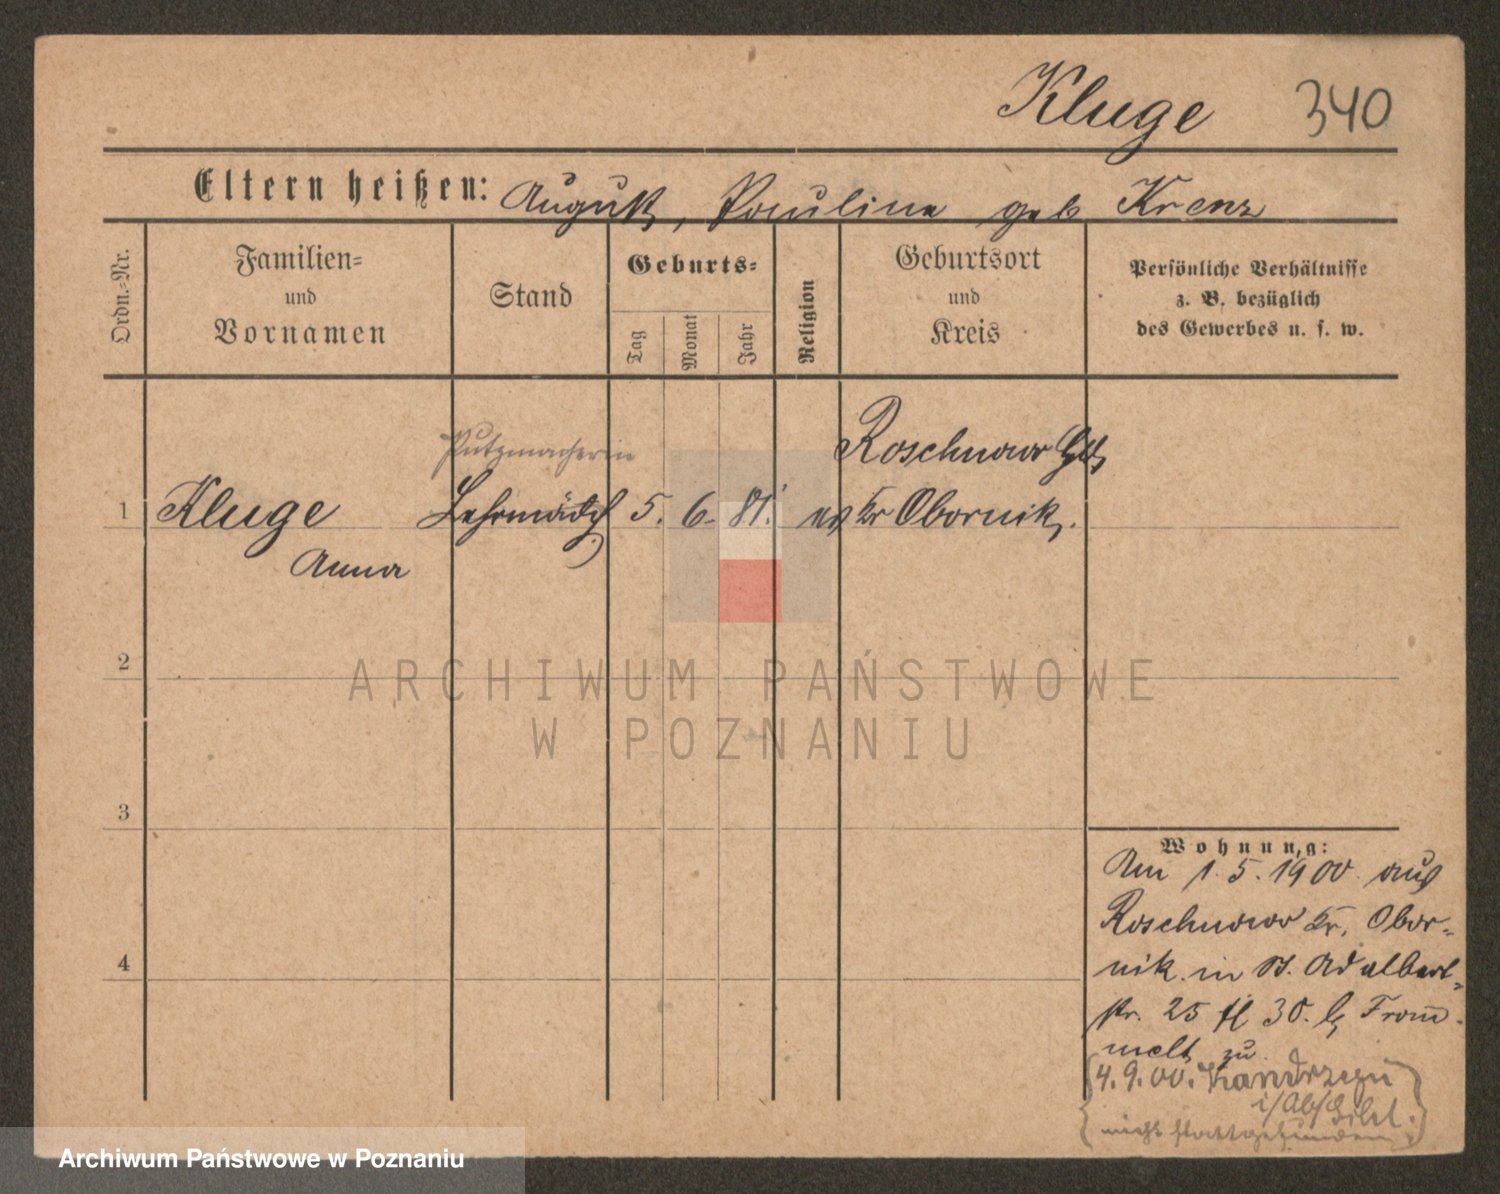 Kluge 340
Eltern heißen: August, Pauline geb Krenz
Ordn.-Nr.
Familien-
und
Vornamen
Stand
Geburts-
Tag
Monat
Jahr
Religion
Geburtsort
und
Kreis
Persönliche Verhältnisse
z. B. bezüglich
des Gewerbes u. s. w.
Putzmacherin
Roschnowo
1 Kluge Lehrmädch 5. 6. 81. ev Kr Obornik.
Anna
2
ARCHIWUM PAŃSTWOWE
W POZNANIU
3
Wohnung:
Am 1.5.1900 aus
Roschnowo Kr. Obor-
nik in St. Adalbert-
str. 25 30. b From-
melt zu.
4
4.9.00. Kandrzyn
nicht stattgefunden
Archiwum Państwowe w Poznaniu